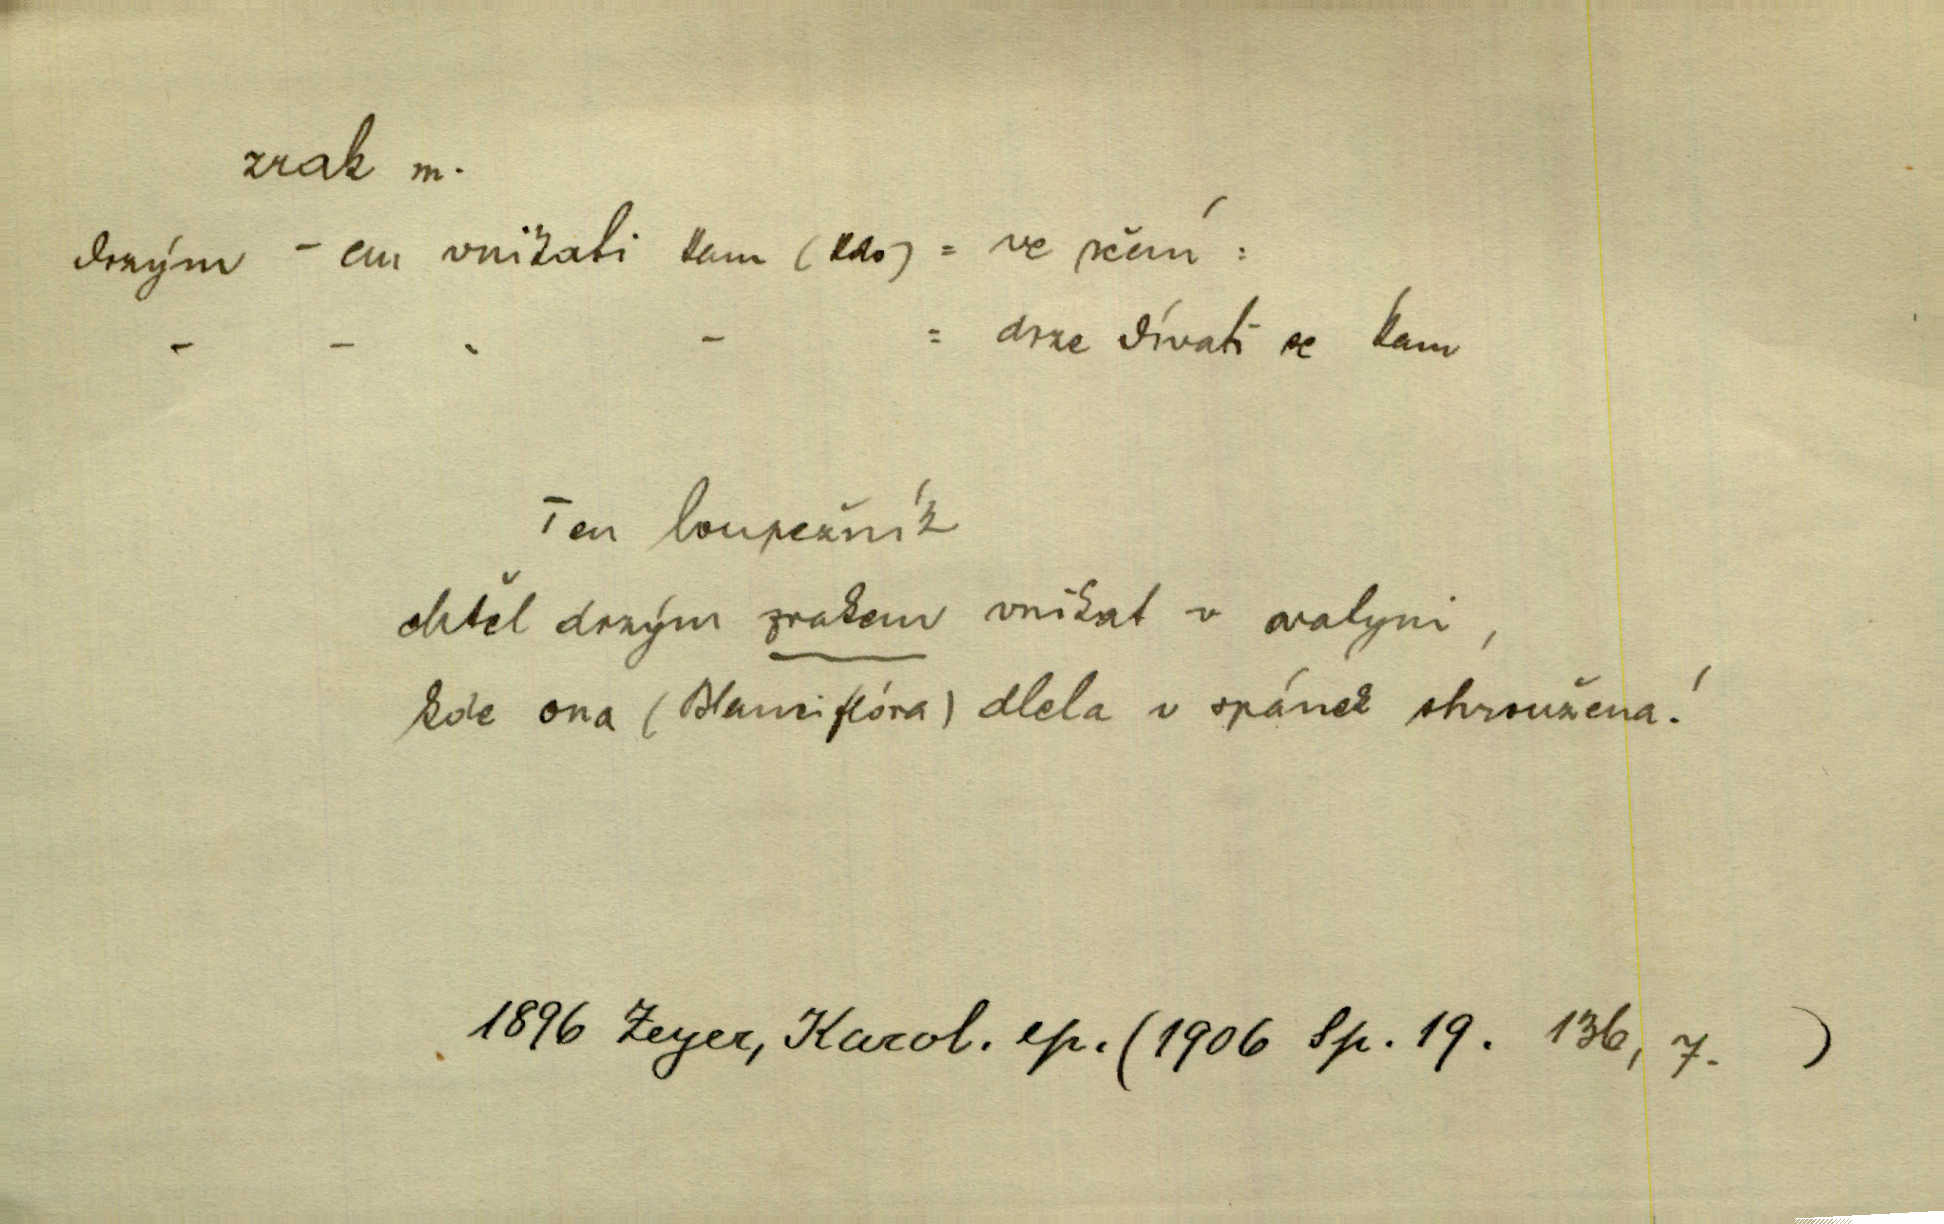 zrak m.
drzým - em vnikati kam (kdo) = ve rčení :
- - - - = drze dívati se kam
Ten loupežník
chtěl drzým zrakem vnikat v svatyni,
kde ona (Blanciflóra) dlela v spánek ohroužena!
1896 Zeyer, Karol. ep. (1906 Sp. 19. 136, 7. )